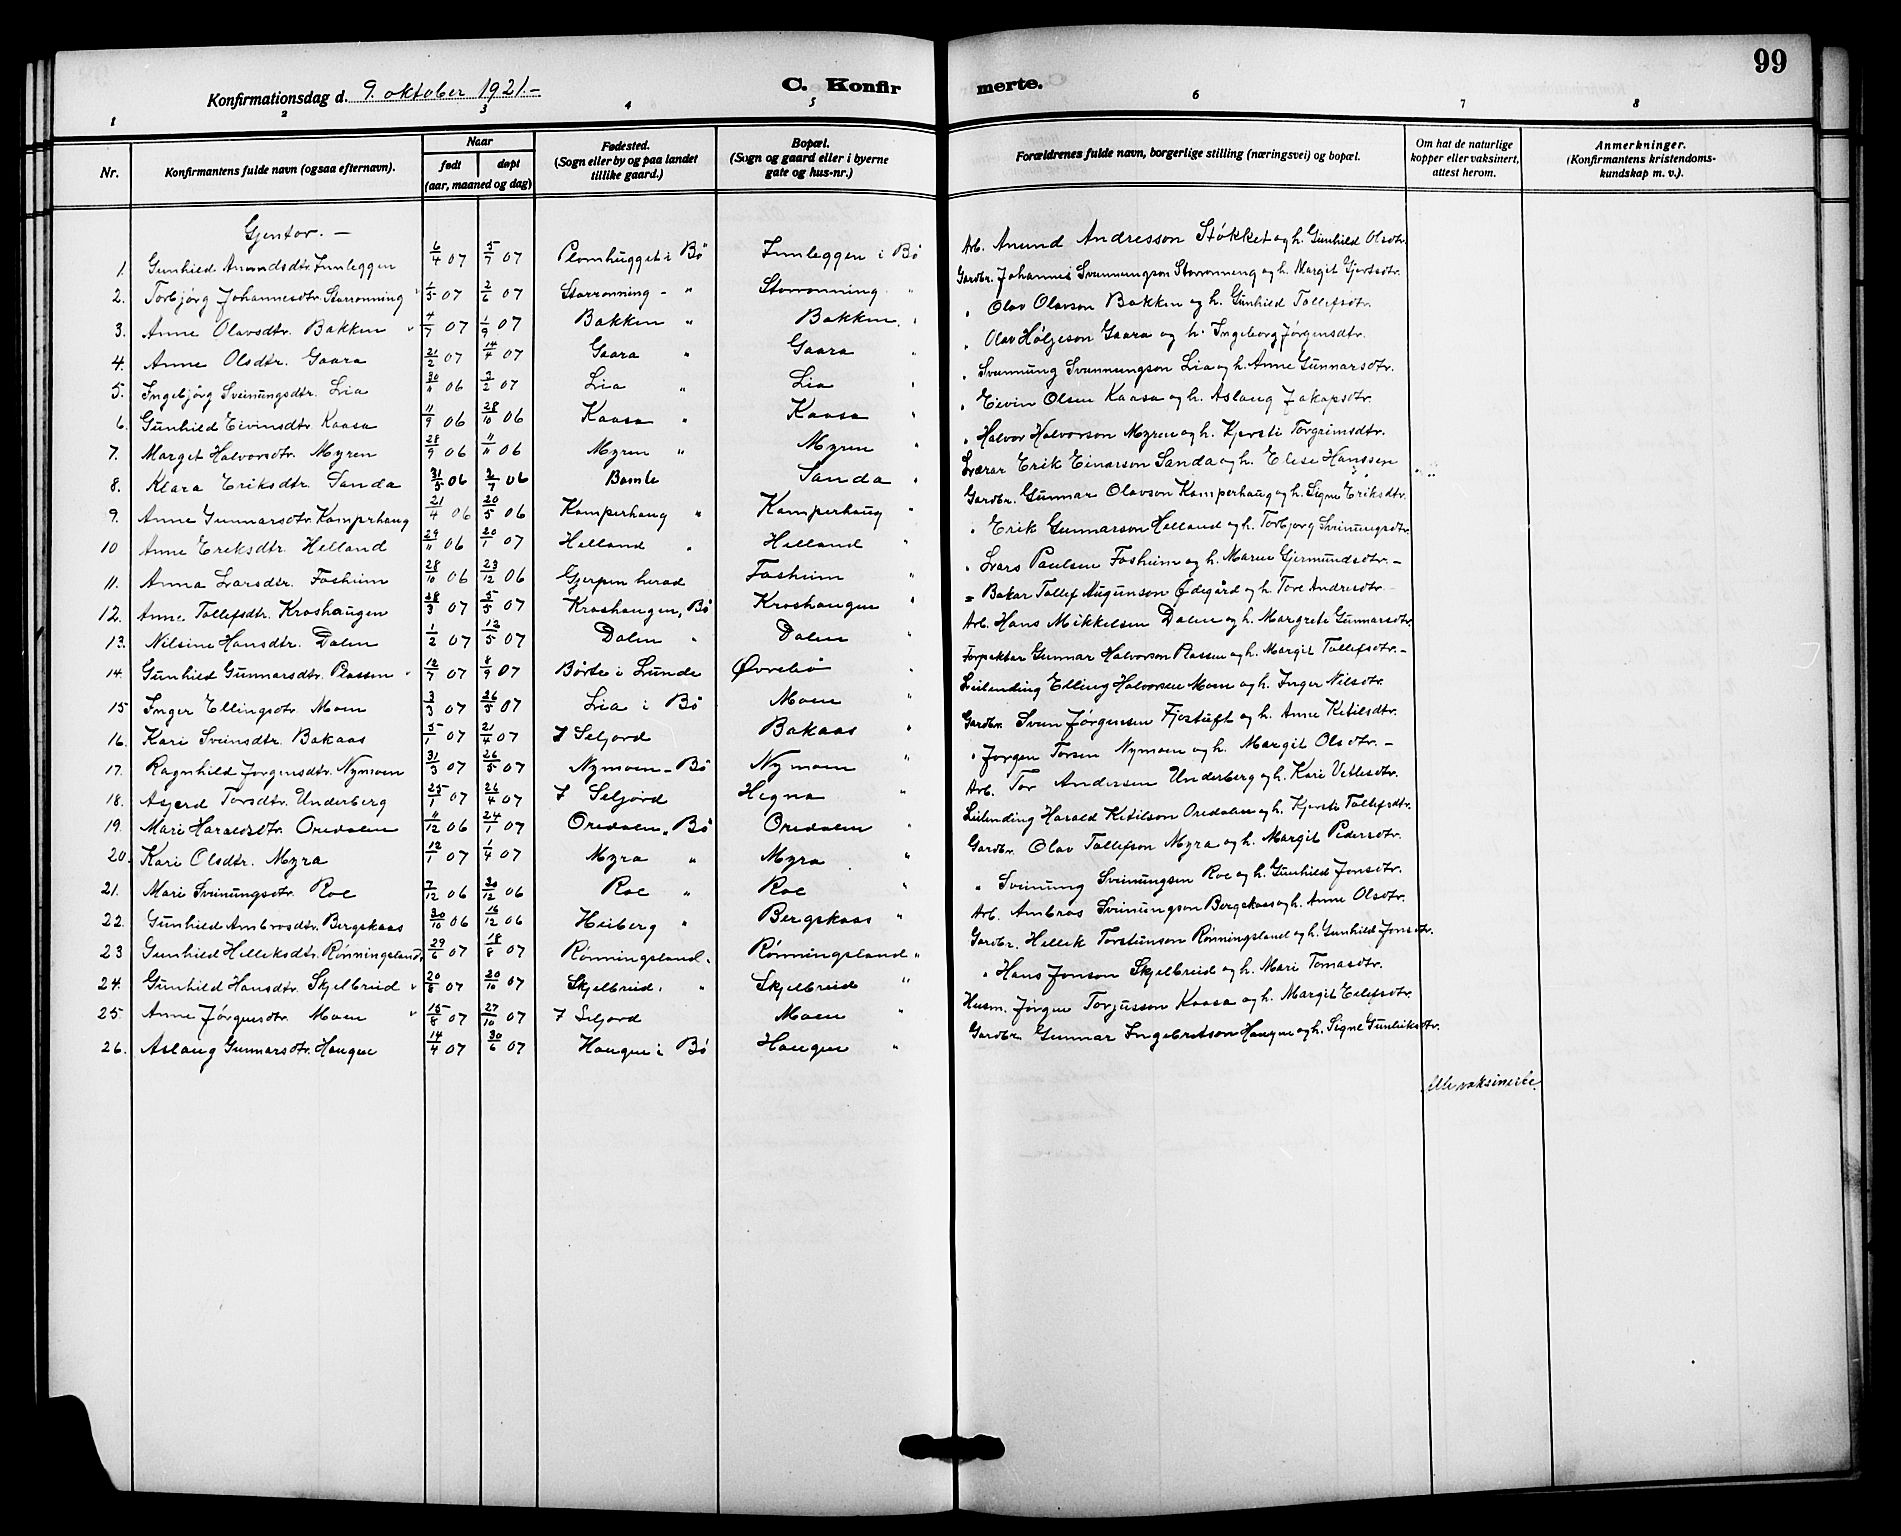 99
Konfirmationsdag d. 9. oktober 1921.-
C. Konfirmerte.
1 2 3 4 5 6 7 8
Nr. Konfirmantens fulde navn (ogsaa efternavn). Naar født døpt (aar, maaned og dag) Fødested. (Sogn eller by og paa landet tillike gaard.) Bopæl. (Sogn og gaard eller i byerne gate og hus-nr.) Forældrenes fulde navn, borgerlige stilling (næringsvei) og bopæl. Om hat de naturlige kopper eller vaksinert, attest herom. Anmerkninger. (Konfirmantens kristendomskundskap m. v.).
Gjentor. -
1. Gunhild Anundsdtr. Innleggen 6/4 07 5/7 07 Plomhugget i Bø Innleggen i Bø Arb. Anund Andresson Støkket og h. Gunhild Olsdtr.
2. Torbjørg Johannesdtr. Storronning 1/5 07 2/6 07 Storronning - " Storronning " Gardbr. Johannes Svennungson Storronneng og h. Margit Gjertsdtr.
3. Anne Olavsdtr. Bakken 4/7 07 1/9 07 Bakken " Bakken " " Olav Olavson Bakken og h. Gunhild Tollefsdtr.
4. Anne Olsdtr. Gaara 21/2 07 14/4 07 Gaara " Gaara " " Olav Høljeson Gaara og h. Ingeborg Jørgensdtr.
5. Ingebjørg Sveinungsdtr. Lia 30/11 06 3/2 07 Lia " Lia " " Svennung Svennungson Lia og h. Anne Gunnarsdtr.
6. Gunhild Eivindsdtr. Kaasa 11/9 06 28/10 06 Kaasa " Kaasa " " Eivin Olsen Kaasa og h. Aslaug Jakopsdtr.
7. Marget Halvorsdtr. Myren 28/9 06 11/11 06 Myren " Myren " " Halvor Halvorson Myren og h. Kjersti Torgrimsdtr.
8. Klara Eriksdtr. Sanda 31/5 06 2/7 06 Bamle Sanda " Lærar Erik Einarson Sanda og h. Elise Hanssen
9. Anne Gunnarsdtr. Kamperhaug 21/4 06 20/5 06 Kamperhaug " Kamperhaug " Gardbr. Gunnar Olavson Kamperhaug og h. Signe Eriksdtr.
10 Anne Eriksdtr. Helland 29/11 06 20/1 07 Helland " Helland " " Erik Gunnarson Helland og h. Torbjorg Sveinungsdtr.
11. Anna Larsdtr. Fosheim 28/10 06 23/12 06 Gjerpen herad Fosheim " " Lars Paulsen Fosheim og h. Maren Gjermundsdtr. -
12. Anne Tollefsdtr. Kroshaugen 28/3 07 5/5 07 Kroshaugen, Bø Kroshaugen " = Bakar Tollef Augunson Ødegård og h. Tore Andresdtr.
13. Nilsine Hansdtr. Dalen 1/2 07 12/5 07 Dalen " Dalen " Arb. Hans Mikkelsen Dalen og h. Margrete Gunnarsdtr.
14. Gunhild Gunnarsdtr. Plassen 12/7 07 8/9 07 Børte i Lunde Øvrebø " Forpakter Gunnar Halvorson Plassen og h. Margit Tollefsdtr. -
15 Inger Ellingsdtr. Moen 3/3 07 26/5 07 Lia i Bø Moen " Leilending Elling Halvorsen Moen og h. Inger Nilsdtr.
16. Kari Sveinsdtr. Bakaas 5/1 07 21/4 07 I Seljord Bakaas " Gardbr. Svein Jørgensen Fjostuft og h. Anne Ketilsdtr.
17. Ragnhild Jorgensdtr. Nymoen 31/3 07 26/5 07 Nymoen - Bø Nymoen " " Jorgen Torsen Nymoen og h. Margit Olsdtr. -
18. Asjerd Torsdtr. Underberg 25/1 07 26/4 07 I Seljord Hegna " Arb. Tor Andersen Underberg og h. Kari Vetlesdtr.
19. Mari Haraldsdtr. Oredalen 11/12 06 24/1 07 Oredalen " Bø Oredalen " Leilending Harald Ketilson Oredalen og h. Kjersti Tollefsdtr.
20. Kari Olsdtr. Myra 12/1 07 1/4 07 Myra " Myra " Gardbr. Olav Tollefson Myra og h. Margit Pedersdtr.
21. Mari Sveinungsdtr. Roe 7/12 06 30/12 06 Roe " Roe " " Sveinung Sveinungsen Roe og h. Gunhild Jonsdtr.
22. Gunhild Ambrosdtr. Bergskaas 30/10 06 16/12 06 Heiberg " Bergskaas " Arb. Ambros Sveinungson Bergskaas og h. Anne Olsdtr.
23 Gunhild Helleksdtr. Rønningsland 29/6 07 18/8 07 Rønningsland " Rønningsland " Gardbr. Hellek Torstensen Rønningsland og h. Gunhild Jonsdtr.
24. Gunhild Hansdtr. Skjelbreid 20/8 07 20/10 07 Skjelbreid " Skjelbreid " " Hans Jonson Skjelbreid og h. Mari Tomasdtr.
25. Anne Jørgensdtr. Moen 15/8 07 27/10 07 I Seljord Moen " Husm. Jørgen Torjusson Kaasa og h. Margit Eelefsdtr.
26. Aslaug Gunnarsdtr. Haugen 14/4 07 30/6 07 Haugen i Bø Haugen " Gardbr. Gunnar Ingebretson Haugen og h. Signe Gunleiksdtr.
Alle vaksinerte.